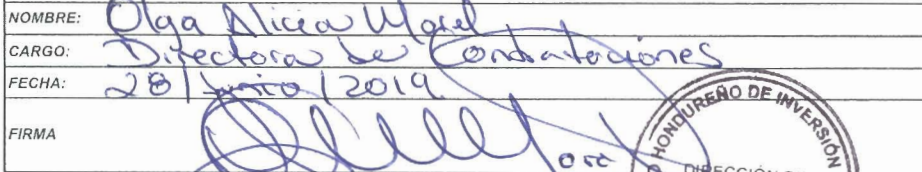 NOMBRE: Olga Alicia Morel
CARGO: Directora de Contrataciones
FECHA: 28/junio/2019
FIRMA
HONDUREÑO DE INVERSIÓN
DIRECCIÓN